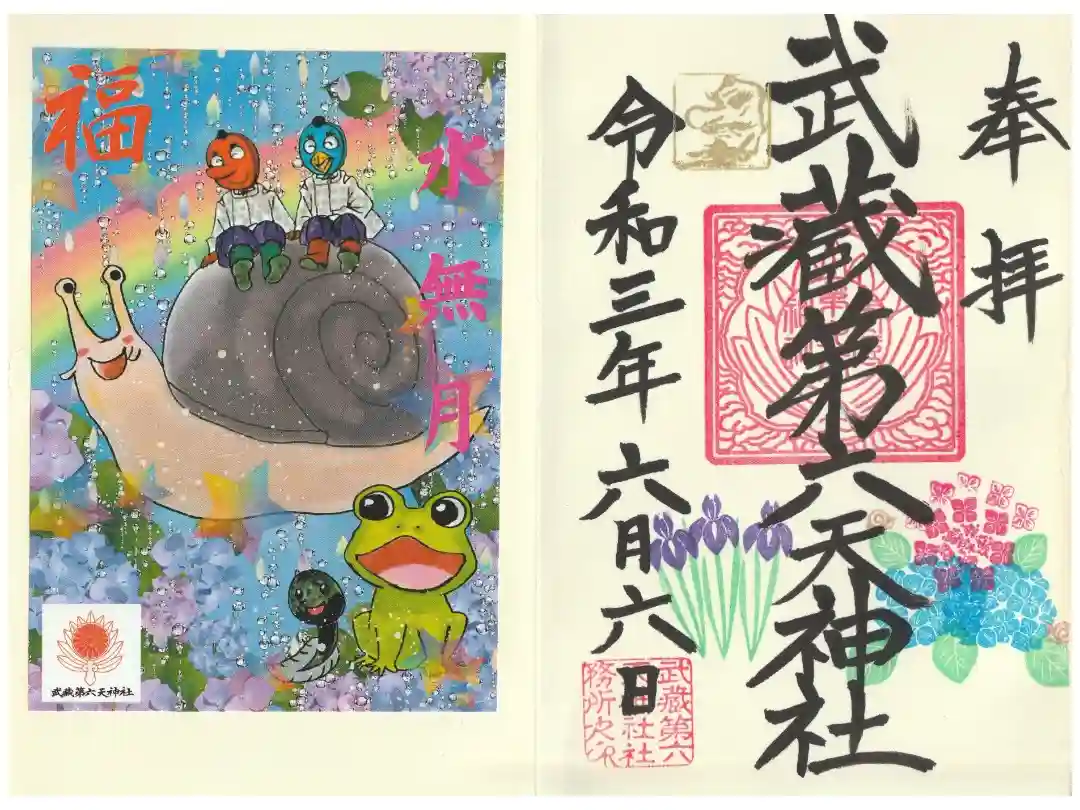 奉拝
武蔵第六天神社
令和三年六月六日
武蔵第六
務所之印
福
水無月
武蔵第六天神社